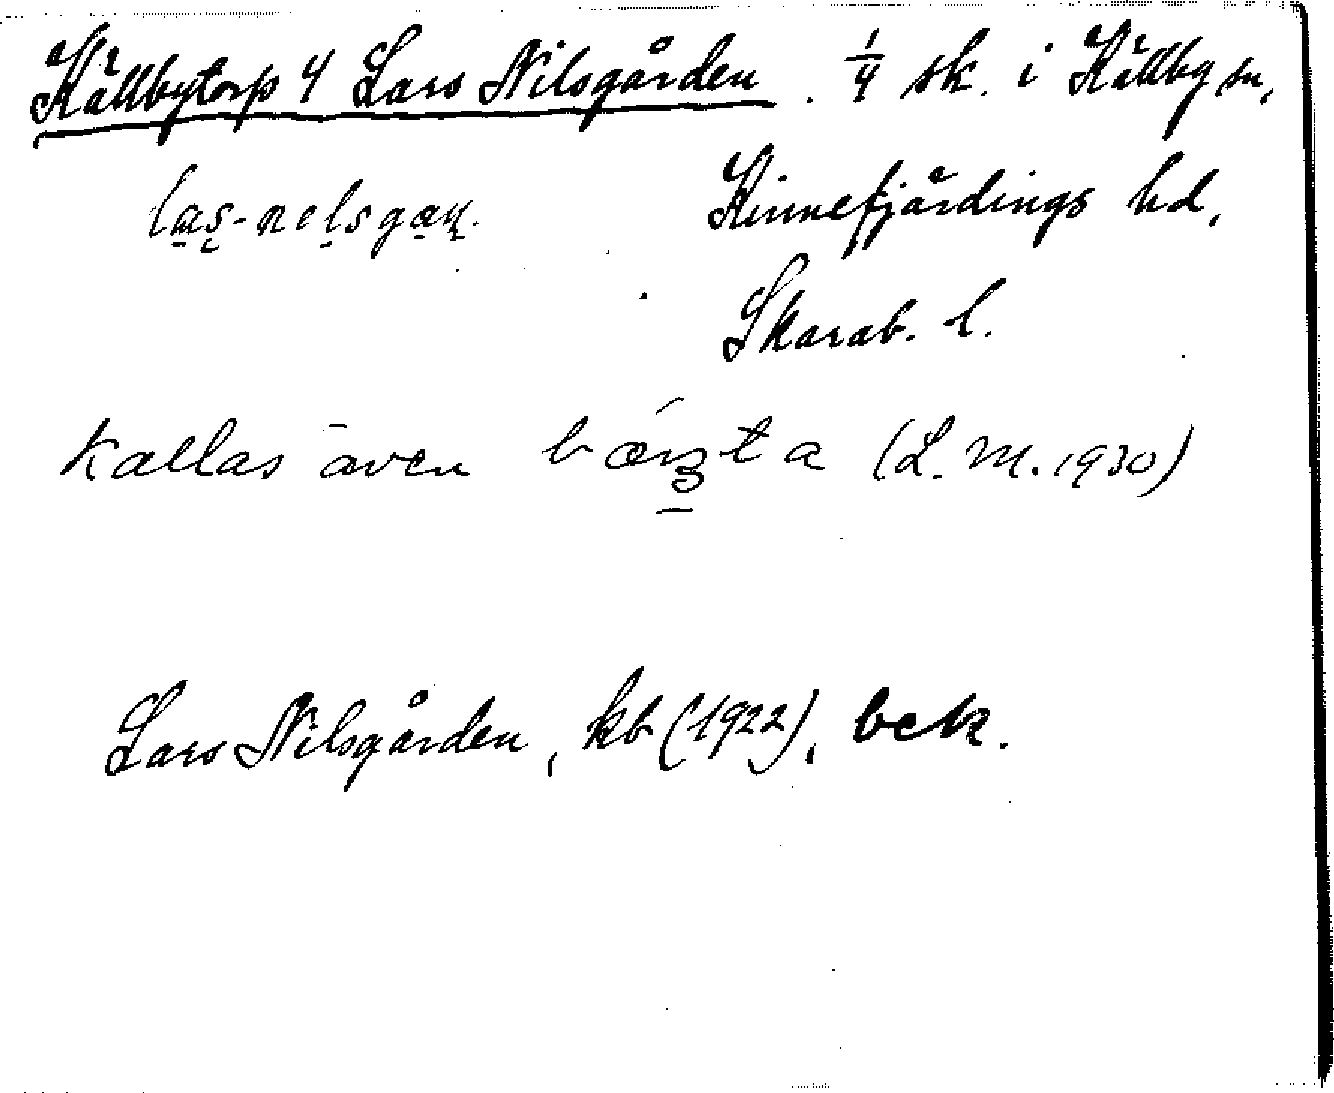 Källbytorp 4 Lars Nilsgården. 1/4 sk. i Källby sn,
Kinnefjärdings hd,
Skarab. l.
Kallas även (L. M. 1930)
Lars Nilsgården, kb (1922), bek.